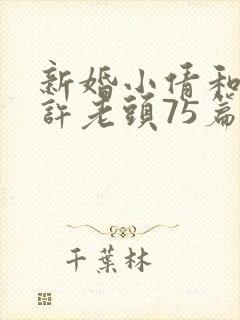 新婚小倩和
許老頭75篇
千葉林